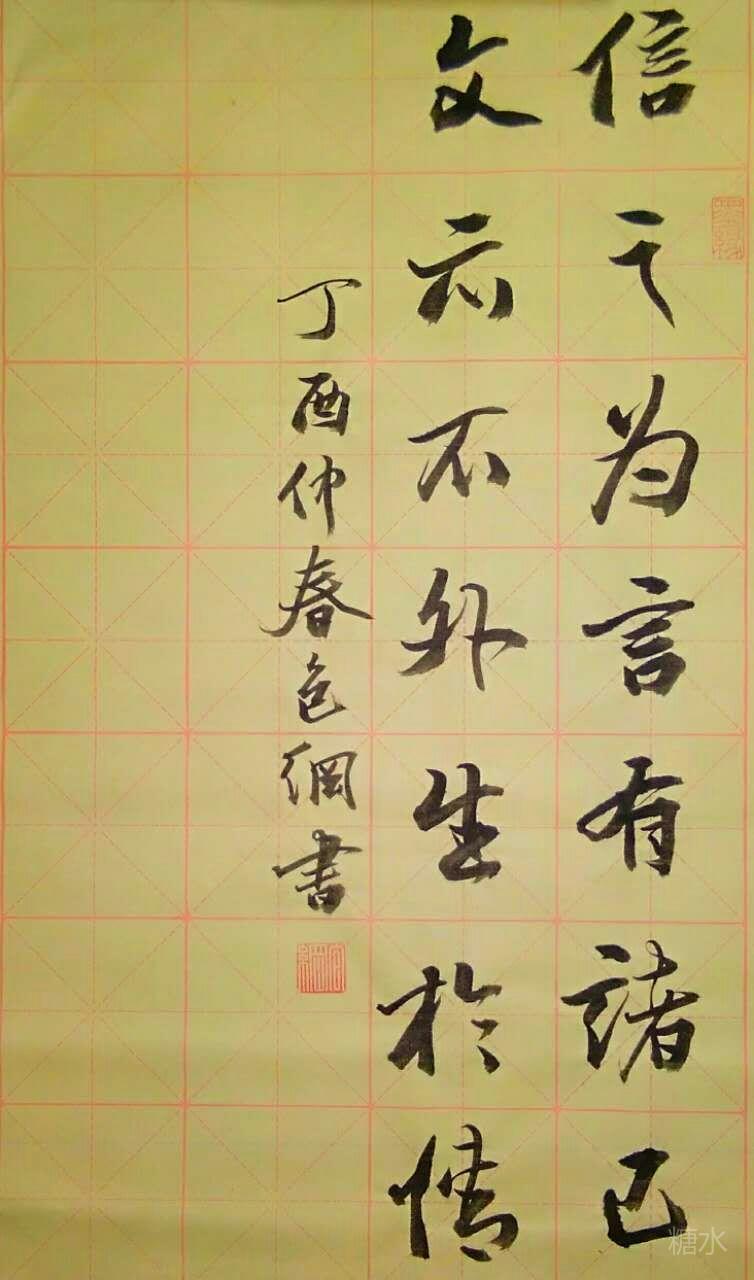 信之为言有諸己
文亦不外生於情
丁酉仲春色綱書
糖水